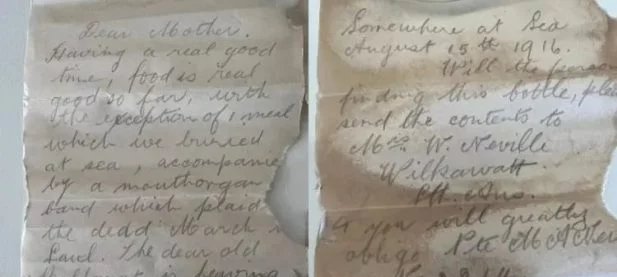 Dear Mother.
Having a real good
time, food is real
good so far, with
the exception of 1 meal
which we burried
at sea, accompanie
by a mouthorgan
band which plaid
the dead March
Saul. The dear old
is heaving
Somewhere at Sea
August 15th 1916.
Will the person
finding this bottle, plea
send the contents to
Mrs W. Neville
Wilkawatt
Sth. Aus.
& you will greatly
oblige Pte M A